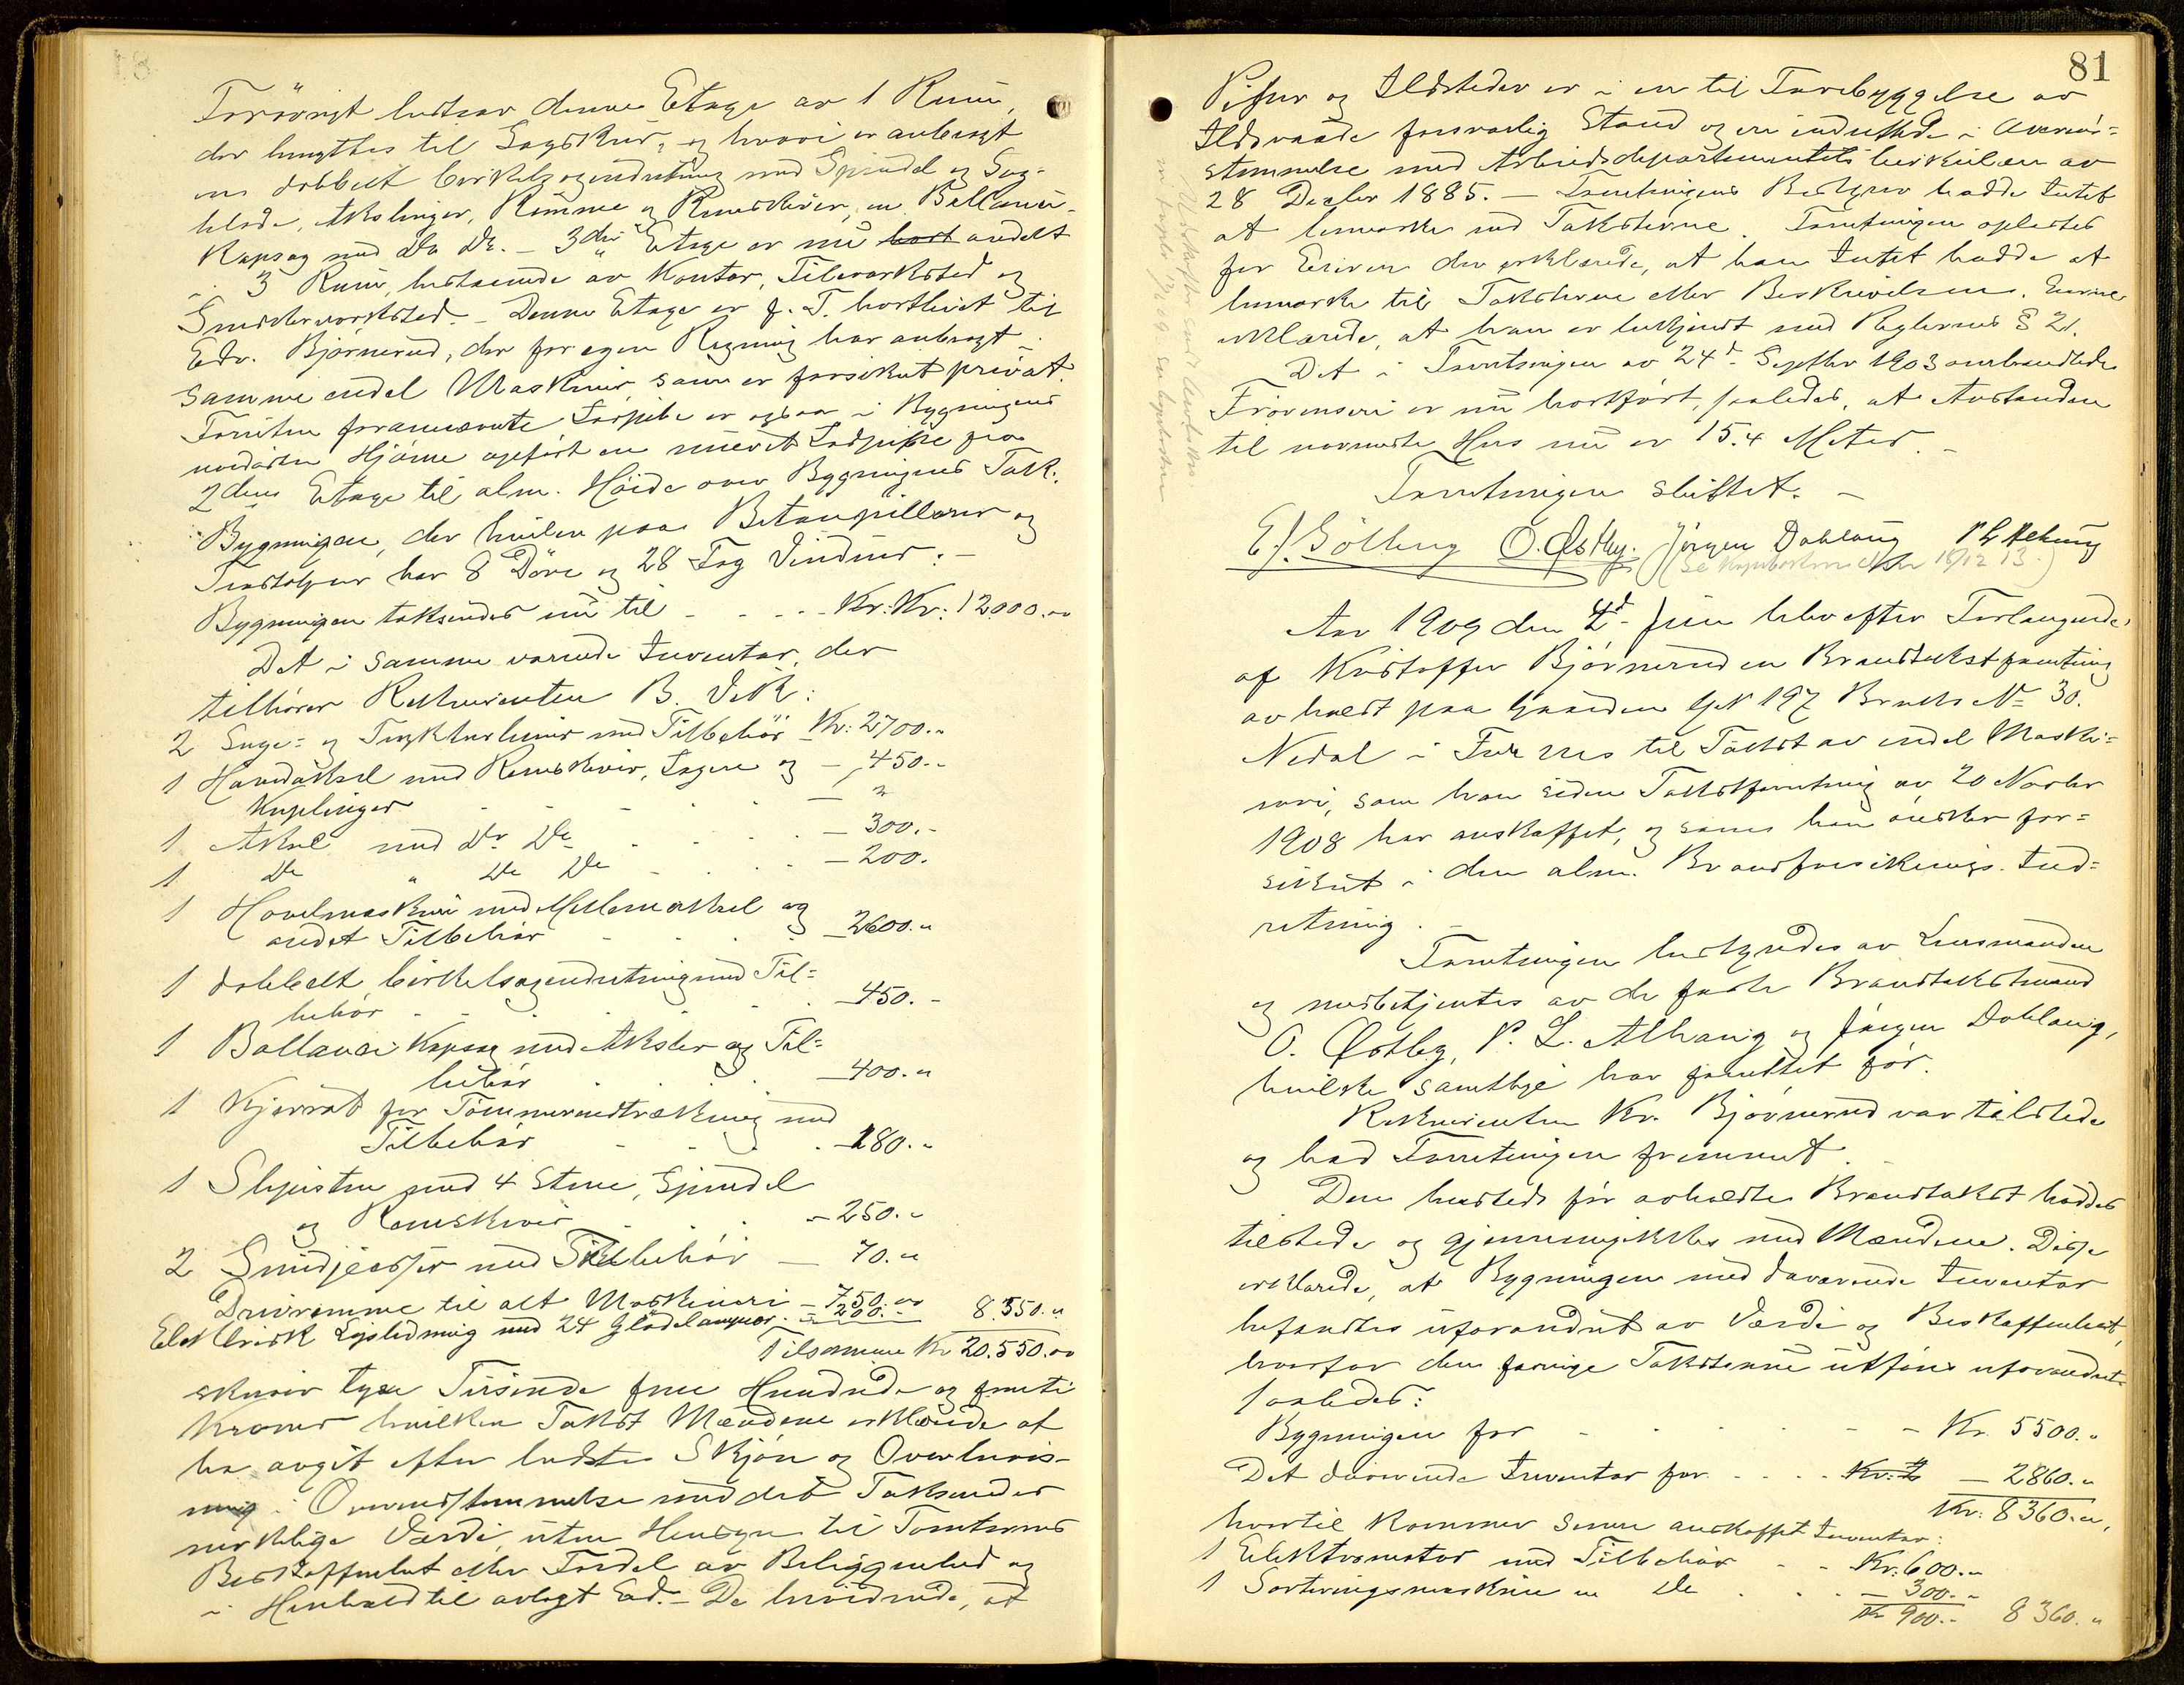 Forövrigt bestaar denne Etage av 1 Rum,
der benyttes til Sagskur, og hvori er anbragt
en dobbelt Cirkelsagindretning med Spindel og Sag-
blade, Akslinger, Remme og Remskiver, en Ballance
Kapsag med Do Do. – 3die Etage er nu bort andelt
i 3 Rum, bestaaende av Kontor, Filerværksted og
Snedkerværksted. – Denne Etage er f. T. bortleiet til
Edv. Bjørnerud, der for egen Regning har anbragt i
samme endel Maskiner, som er forsikret privat.
Foruten forannævnte Ildpibe er ogsaa i Bygningens
nordöstre Hjörne opfört en muret Ildpipe fra
2den Etage til alm. Höide over Bygningens Tak.
Bygningen, der hviler paa Betonpillarer og
Træstolper har 8 Döre og 28 Fag Vinduer. –
Bygningen takseredes nu til - - - - Kr: Kr: 12000.00
Det i samme værende Inventar, der
tilhører Rekvirenten B. Vek:
2 Suge- og Trykturbiner med Tilbehör Kr: 2700.-
1 Hovedaksel med Remskiver, Lagere og - 450.-
Kuplinger - - - - -
1 Aksel med Do Do - - - 300.-
1 Do " Do Do - - - 200.
1 Hovelmaskin med Mellemaksel og
andet Tilbehör - - - 2600.-
1 dobbelt Cirkelsagindretning med Til-
behör - - - - 450.-
1 Ballance Kapsag med Aksler og Til-
behör - - - 400.-
1 Kjerrat for Tömmerindtrækning med
Tilbehör - - - 180.-
1 Slipesten med 4 Stene, Spindel
og Remskiver - - - 250.-
2 Smidjeesser med Tilbehör - 70.-
Drivremme til alt Maskineri - 750.00
Elektrisk Lysledning med 24 Glödelamper - 200.- 8.550.-
Tilsammen Kr 20.550.00
skriver tyve Tusinde fem Hundrede og femti
Kroner hvilken Takst Mændene erklærede at
ha avgit efter bedste Skjön og Overbevis-
ning i Overensstemmelse med det Takseredes
virkelige Værdi, uten Hensyn til Tomternes
Beskaffenhet eller Fordel av Beliggenhed og
i Henhold til avlagt Ed. – De bevidnede, at
81
Piper og Ildsteder er i en til Forebyggelse av
Ildsvaade forsvarlig Stand og er indrettede i Overens-
stemmelse med Arbeidsdepartementets Cirkulære av
28 Decbr 1885. – Forretningens Bestyrer hadde Intet
at bemærke ved Taksterne. Forretningen oplæstes
for Eieren der erklærede, at han Intet hadde at
bemærke til Taksterne eller Beskrivelsen. Eieren
erklærede, at han er bekjendt med Reglernes § 21.
Det i Forretningen av 24de Septbr 1903 omhandlede
Frörenseri er nu bortfört, saaledes, at Avstanden
til nærmeste Hus nu er 15.4 Meter. –
Forretningen sluttet. –
E. Sölberg O. Østby. Jörgen Dahlaug P L Alhaug
Aar 1909 den 4de Juni blev efter Forlangende
af Kristoffer Bjørnerud en Brandtakstforretning
avholdt paa Gaarden G.N 197 Bruks No 30.
Nedal i Furnes til Takst av endel Maski-
neri, som han siden Takstforretning av 20 Novbr
1908 har anskaffet, og som han önsker for-
sikret i den alm. Brandforsikrings-Ind-
retning. –
Forretningen bestyredes av Lensmanden
og medbetjentes av de faste Brandtakstmænd
O. Østby, P. L. Alhaug og Jörgen Dahlaug,
hvilke samtlige har forrettet før.
Rekvirenten Kr. Bjørnerud var tilstede
og bad Forretningen fremmet.
Den herstede før avholdte Brandtakst havdes
tilstede og gjennemgikkes med Mændene. Disse
erklærede, at Bygningen med daværende Inventar
befandtes uforandret av Værdi og Beskaffenhet,
hvorfor den forrige Takst nu utföres uforandret
saaledes:
Bygningen for - - - - - Kr. 5500.-
Det daværende Inventar for - - - Kr: 2 - 2860.-
Kr: 8360.-
hvortil kommer senere anskaffet Inventar:
1 Elektromotor med Tilbehör - - Kr. 600.-
1 Sorteringsmaskine m Do - - - 300.-
Kr 900.- 8360.-